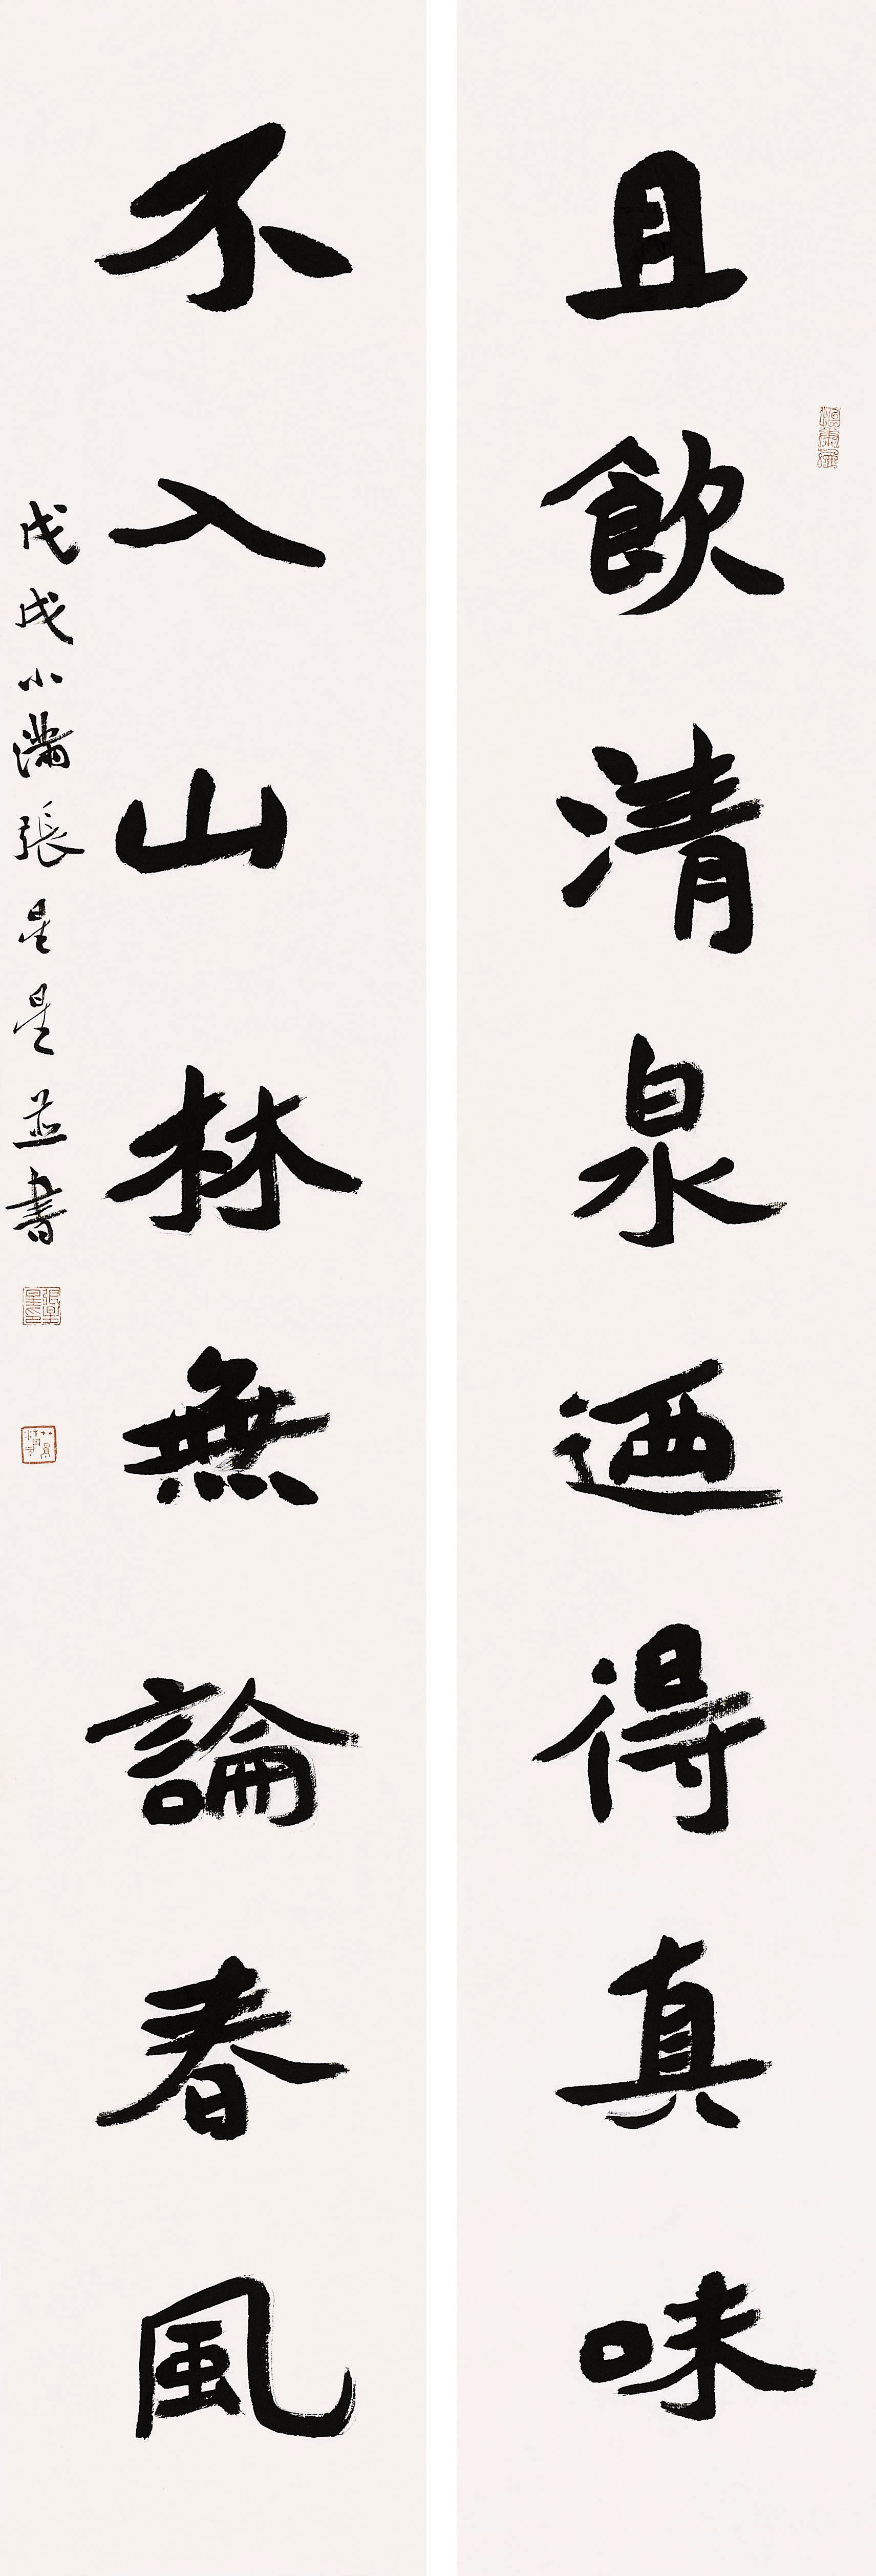 且飲清泉迺得真味
不入山林無論春風
戊戌小滿張星星並書